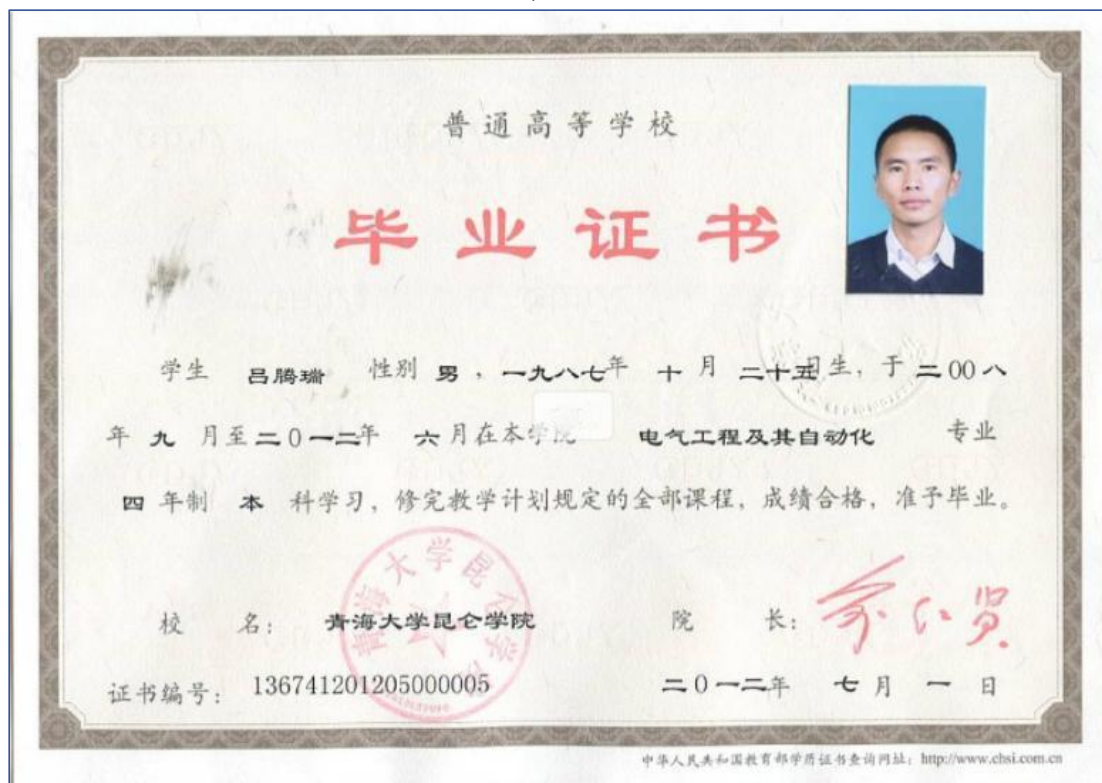 普通高等学校
毕业证书
学生 吕腾瑞 性别 男，一九八七年 十 月 二十五日生，于二00八
年 九 月至二0一二年 六月在本学院 电气工程及其自动化 专业
四 年制 本 科学习，修完教学计划规定的全部课程，成绩合格，准予毕业。
青海大学昆仑学院
校 名：青海大学昆仑学院 院 长：
证书编号：136741201205000005 二0一二年 七月 一 日
中华人民共和国教育部学历证书查询网址：http://www.chsi.com.cn